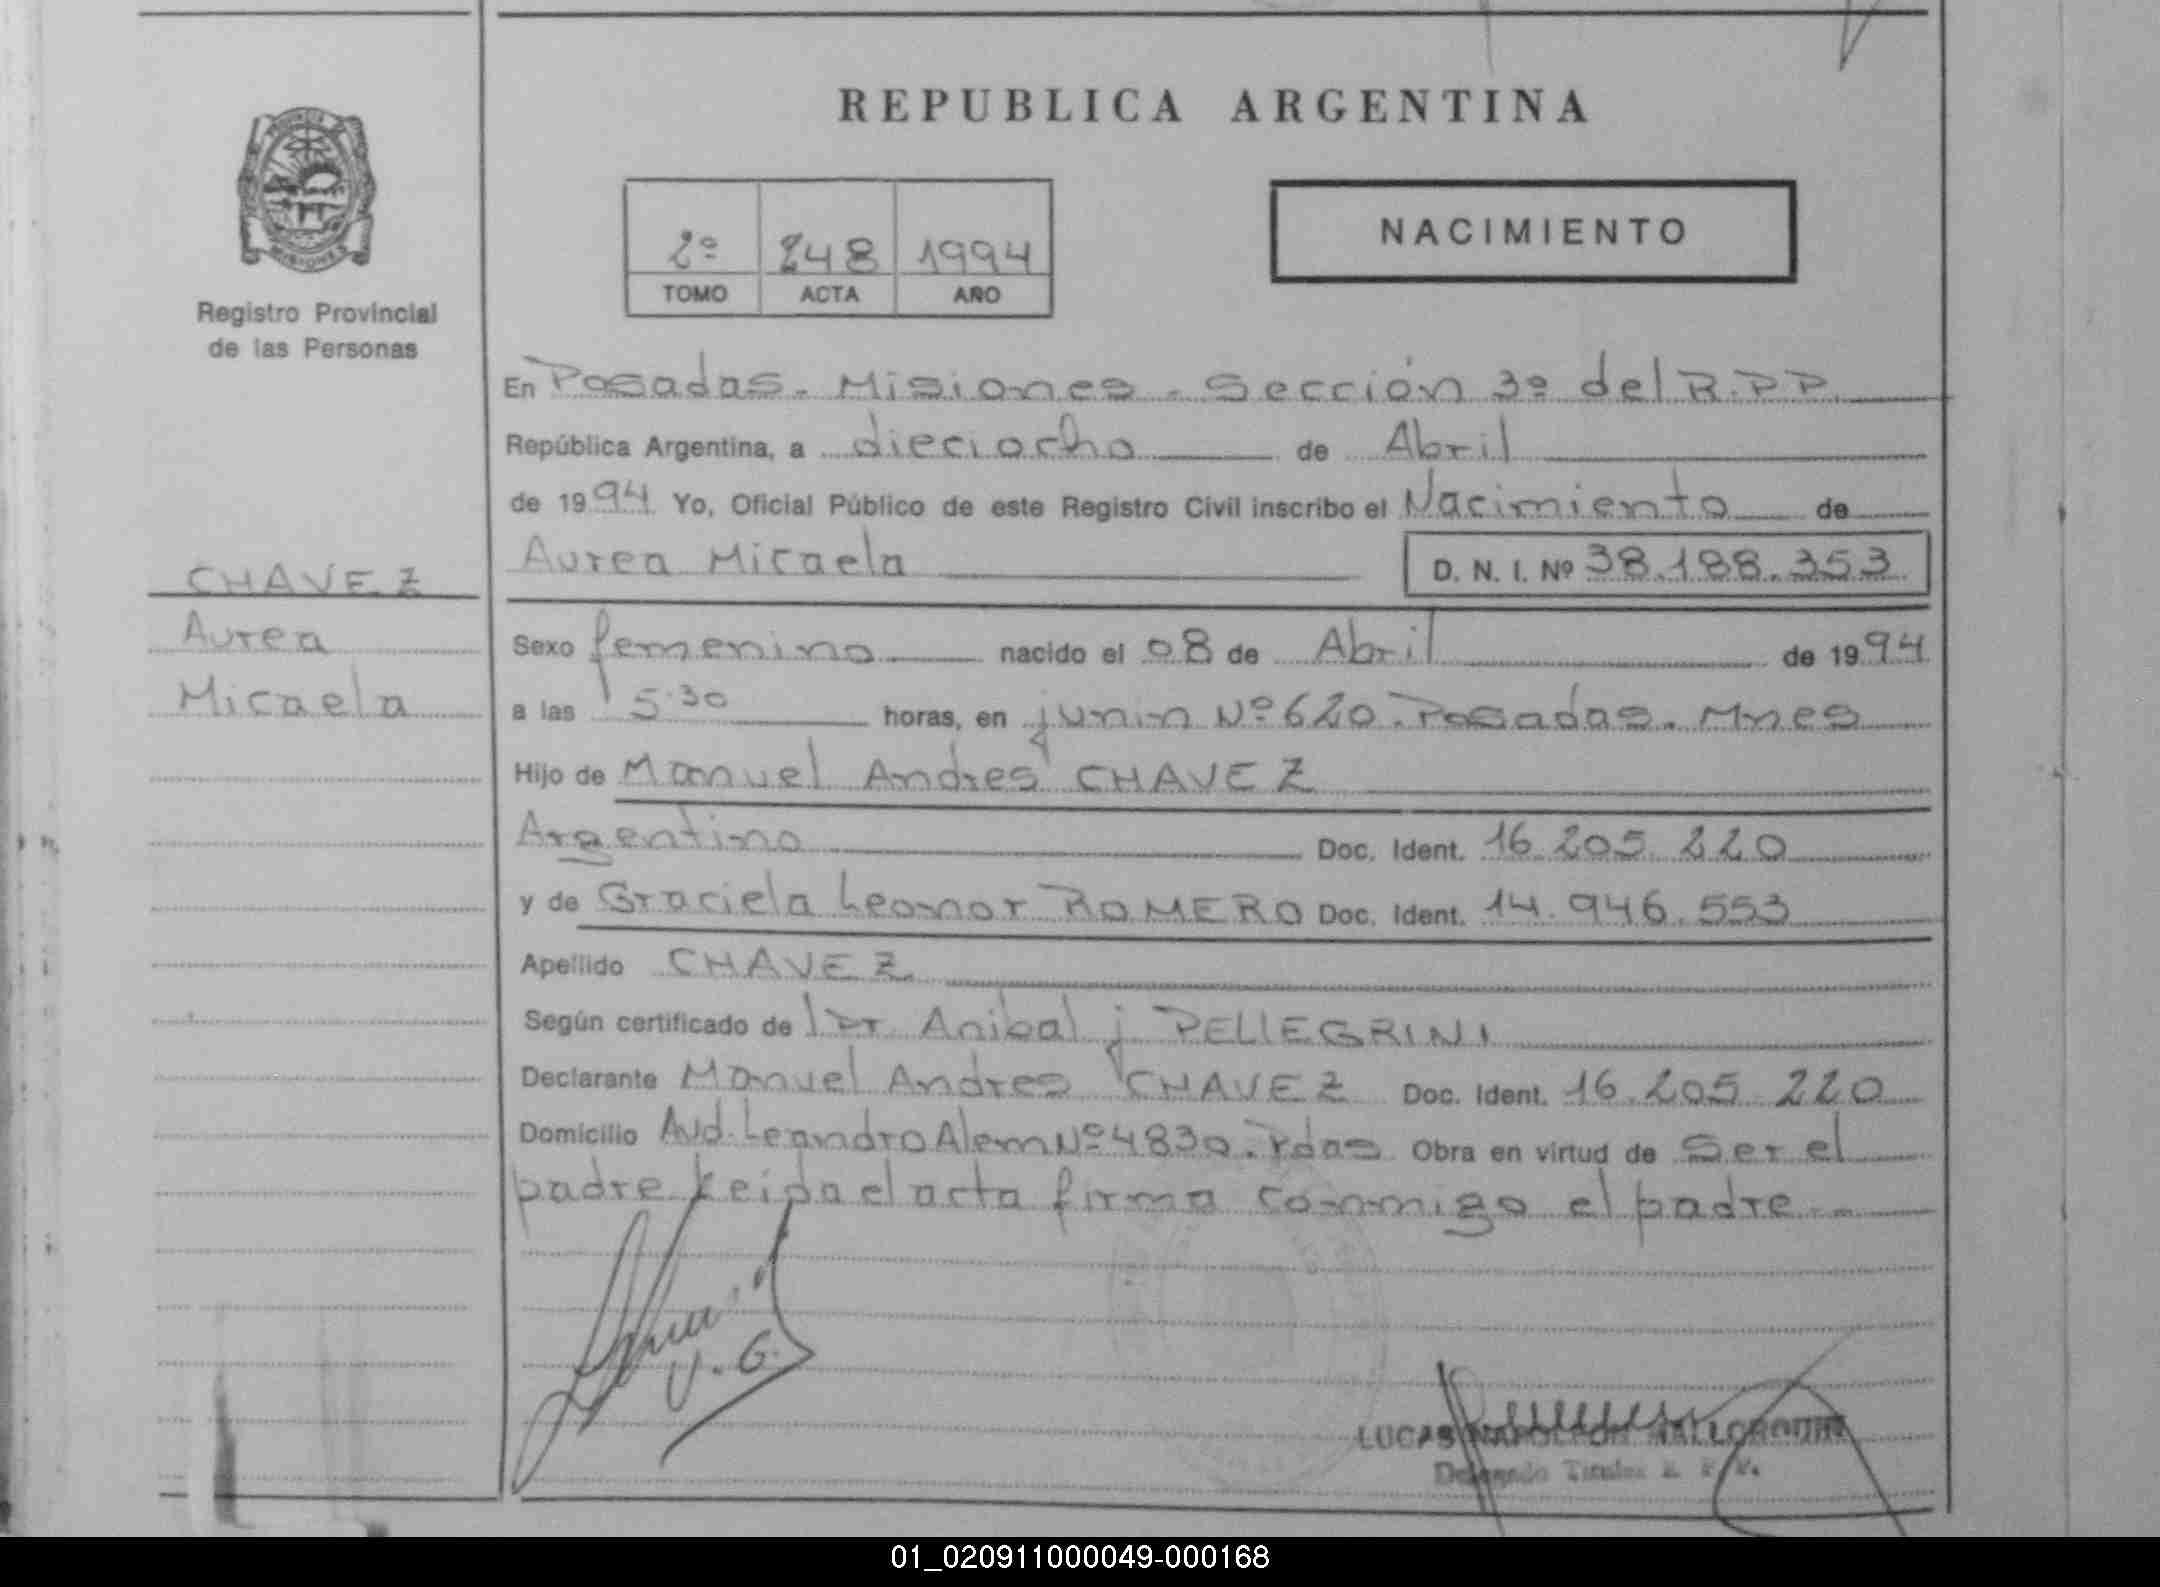 REPUBLICA ARGENTINA
PROVINCIA DE
MISIONES
Registro Provincial
de las Personas
2º 248 1994
TOMO ACTA AÑO
NACIMIENTO
CHAVEZ
Aurea
Micaela
En Posadas - Misiones - Sección 3º del R.P.P.
República Argentina, a dieciocho de Abril
de 1994 Yo, Oficial Público de este Registro Civil inscribo el Nacimiento de
Aurea Micaela D. N. I. Nº 38.188.353
Sexo femenino nacido el 08 de Abril de 1994
a las 5:30 horas, en junin Nº 620. Posadas. Mnes
Hijo de Manuel Andres CHAVEZ
Argentino Doc. Ident. 16.205.220
y de Graciela Leonor ROMERO Doc. Ident. 14.946.553
Apellido CHAVEZ
Según certificado de l Dr. Anibal j PELLEGRINI
Declarante Manuel Andres CHAVEZ Doc. Ident. 16.205.220
Domicilio Avd. Leandro Alem Nº 4830. Pdas Obra en virtud de Ser el
padre Leida el acta firma conmigo el padre
LUCAS NAPOLEON
Delegado Titular
01_020911000049-000168